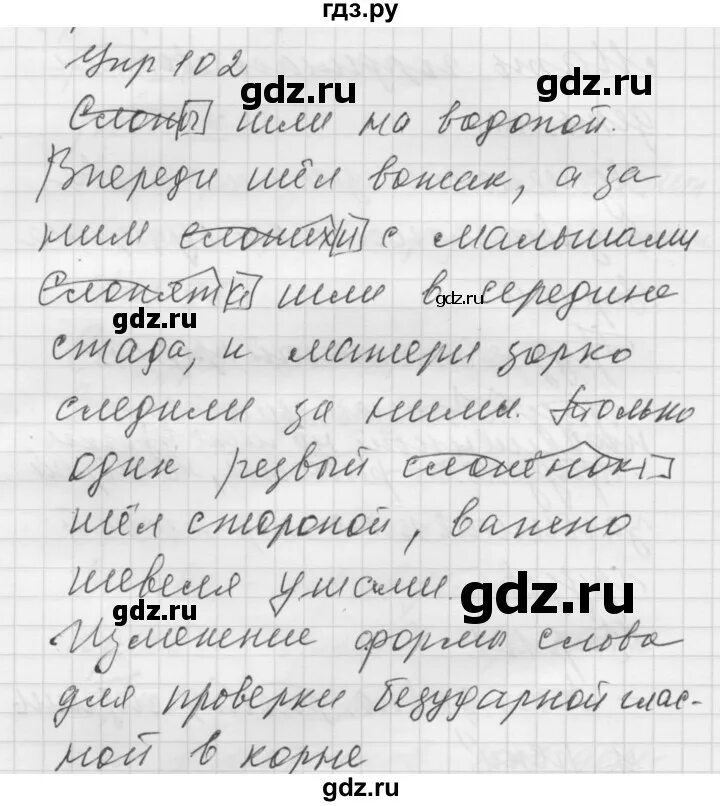 гдз.ру
Упр 102
gdz.ru
Слоны шли на водопой.
Впереди шёл вожак, а за
gdz.ru
ним слонихи с малышами
Слонятка шли в середине
gdz.ru
gdz.ru
стада, и матери зорко
gdz.ru
следили за ними. Только
один резвый слонёнок
gdz.ru
шёл стороной, важно
шевеля ушами.
gdz.ru
gdz.ru
Изменение формы слова
для проверки безударной глас-
ной в корне
gdz.ru